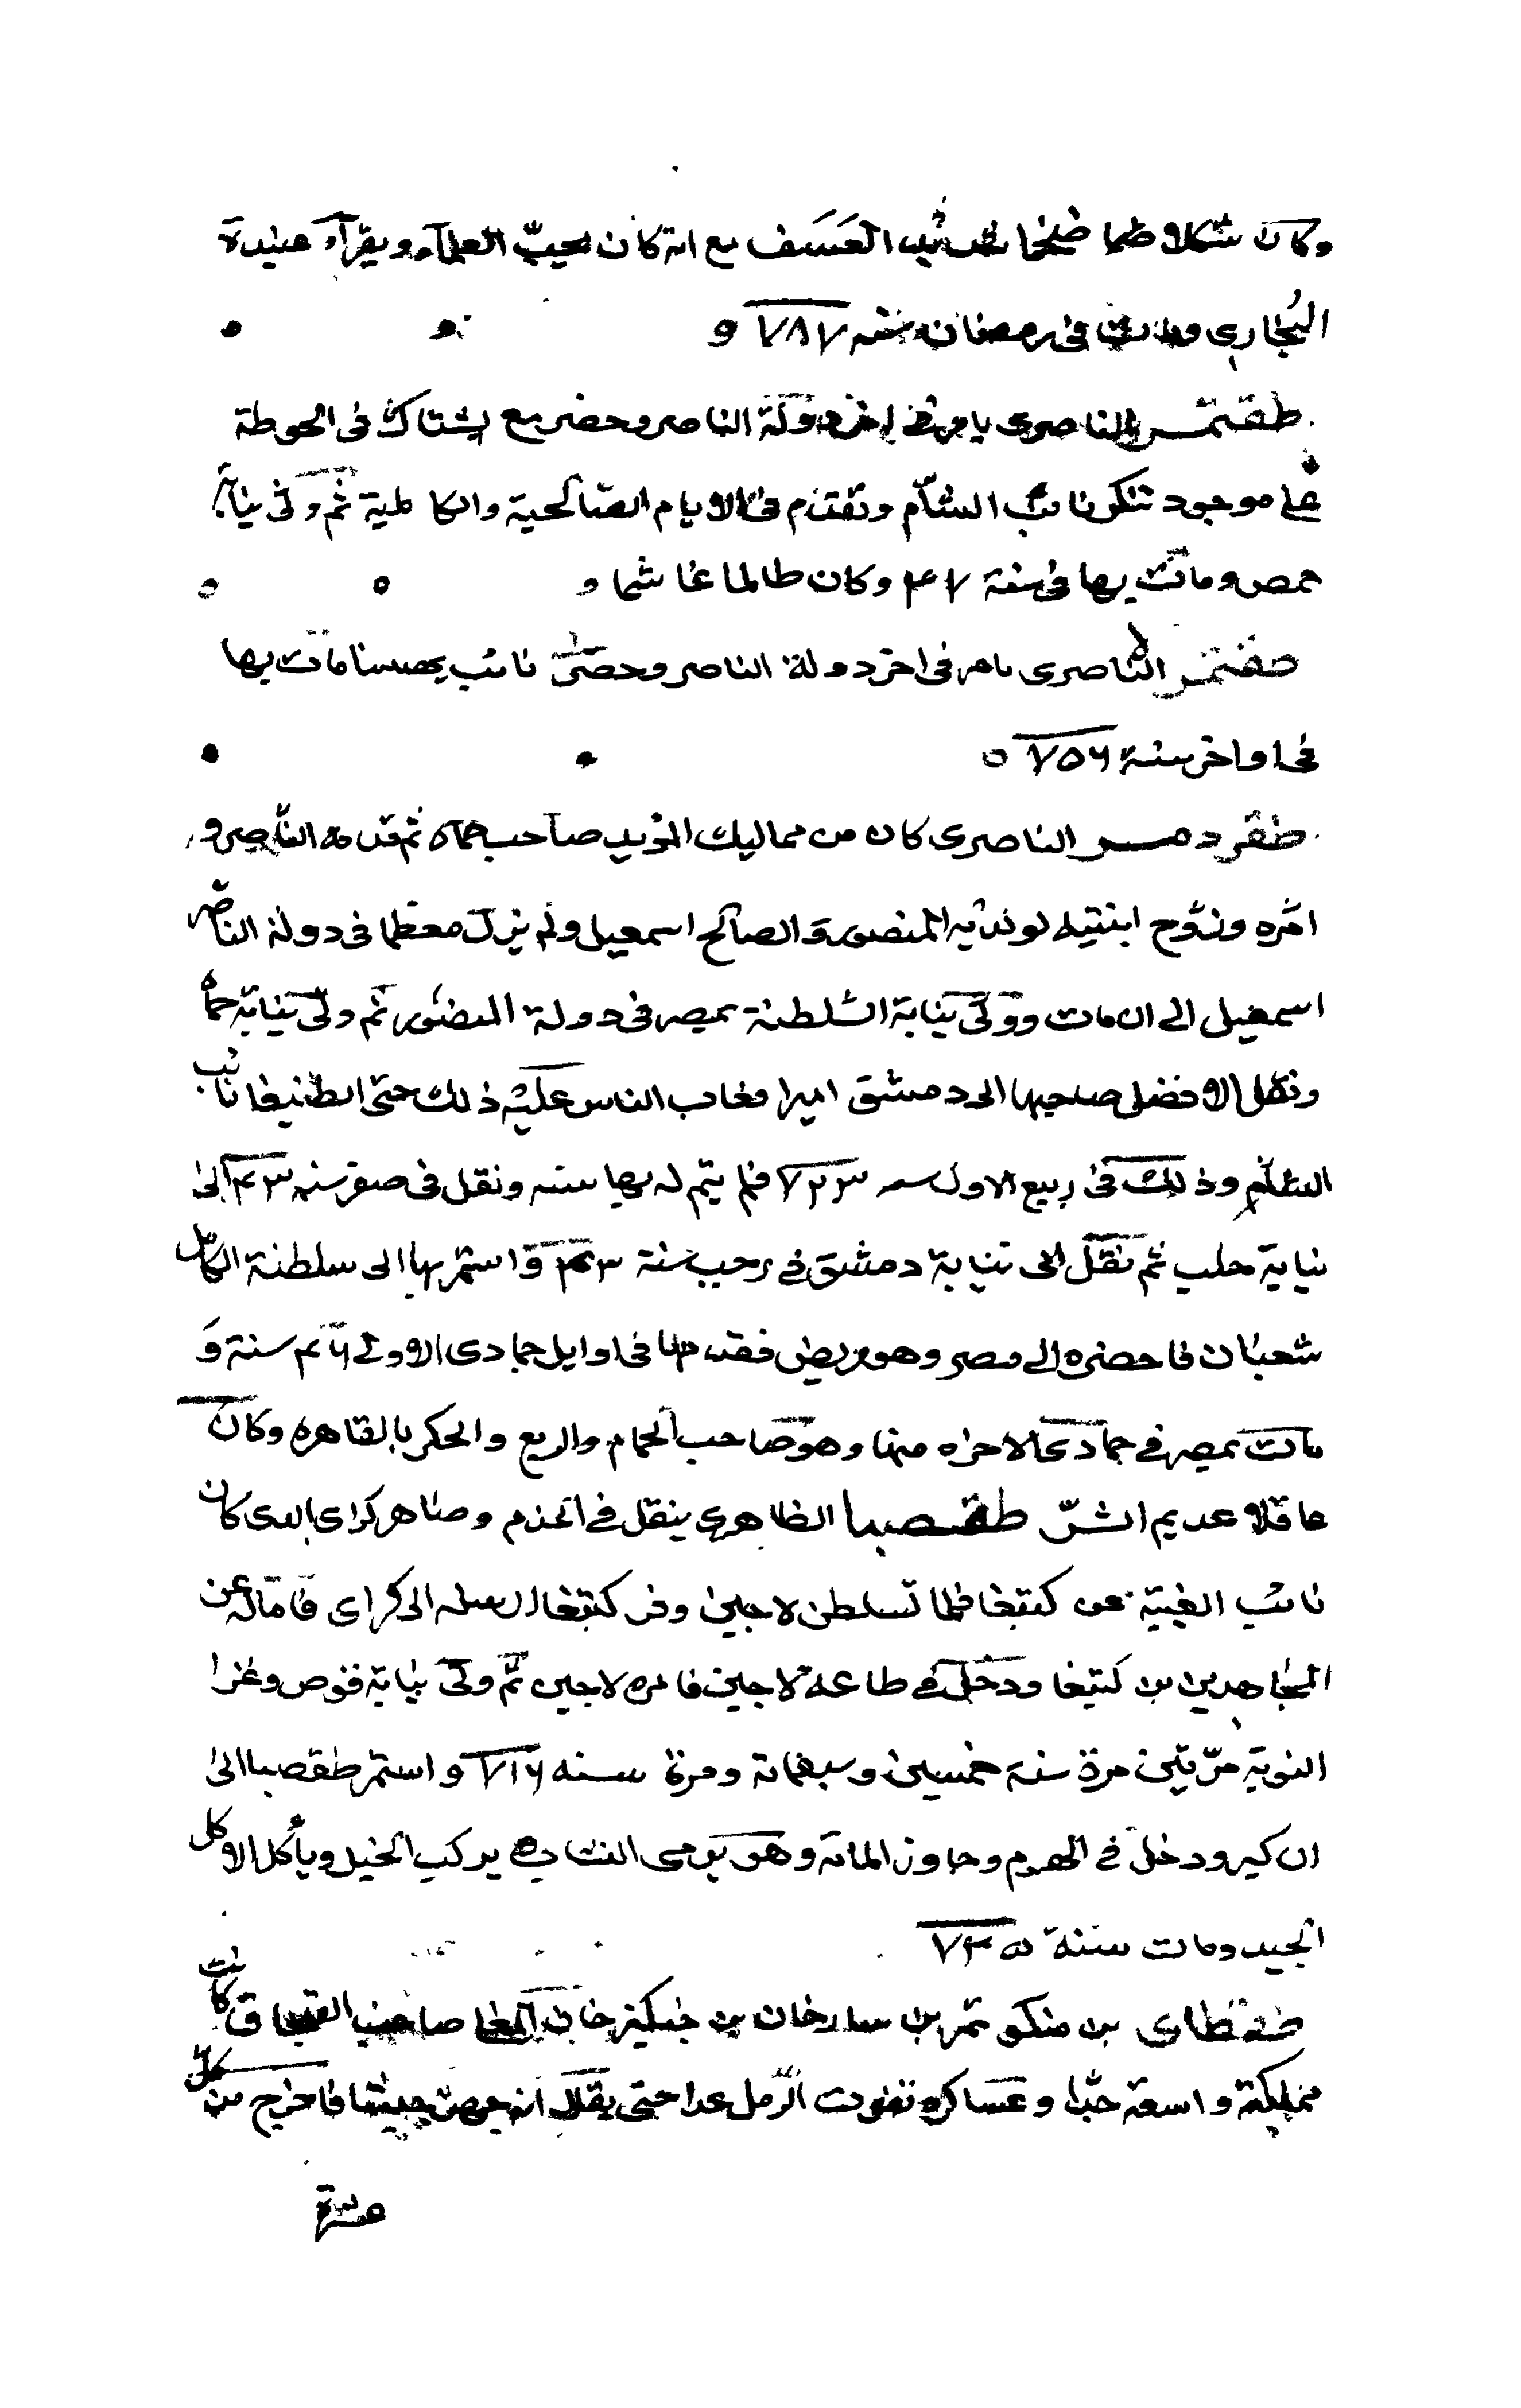 وكان شكلا ضخما شديد العسف مع انه كان يحب العلماء ويقرأ عنده
البخاري ومات في رمضان سنه ٧٨٧
طقتمر الناصرى تامر في اخر دولة الناصر وحضر مع بشتاك فى الحوطة
على موجود تنكز نائب الشام وتقدم في الايام الصالحية والكاملية ثم ولى نيابة
حمص ومات بها فى سنة ٤٧ وكان ظالما غاشما
طقتمر الناصرى تامر فى اخر دولة الناصر نائب مات بها
فى اواخر سنة ٧٥٦
طقزدمر الناصرى كان من مماليك المؤيد صاحب حماه ثم قدمه الناصر و
امره وزوج ابنتيه لولديه المنصور والصالح اسمعيل ولم يزل معظما فى دولة الناصر
اسمعيل الى ان مات وولى نيابة السلطنة بمصر فى دولة المنصور ثم ولى نيابة حماة
ونقل الافضل صاحبها الى دمشق اميرا فعاب الناس عليه ذلك حتى الطنبغا نائب
الشام وذلك فى ربيع الاول فلم يتم له بها سنه ونقل فى صفر سنه ٤٣ الى
نيابة حلب ثم نقل الى نيابة دمشق في رجب سنة ٤٣ واستمر بها الى سلطنة الكامل
شعبان فاحضره الى مصر وهو مريض فقدمها فى اوايل جمادى الاولى ٤٦ سنة و
مات بمصر في جمادى الاخره منها وهو صاحب الحمام والربع والحكر بالقاهره وكان
عاقلا عديم الشر طقصبا الظاهرى ينقل في الخدم وصاهر كراى الدى كان
نائب الغيبة عن كتبغا فلما تسلطن لاجين وفر كتبغا ارسله الى كراى فاماله عن
كتبغا ودخل في طاعة لاجين فامره لاجين ثم ولى نيابة قوص وغزا
النوبة مرتين مرة سنة خمسين وسبعمائة ومرة سنه ٧١٦ واستمر طقصبا الى
ان كبر ودخل في الهرم وجاوز المائة وهو يرمى النشاب يركب الخيل وياكل الاكل
الجيد ومات سنة ٧٤٥
طقطاى بن منكوتمر بن خان بن جنكيز خان صاحب القبجاق كانت
مملكته واسعة جدا وعساكره تفوت الرمل عدا حتى يقال انه جهز جيشا فاخرج من كل
عشرة